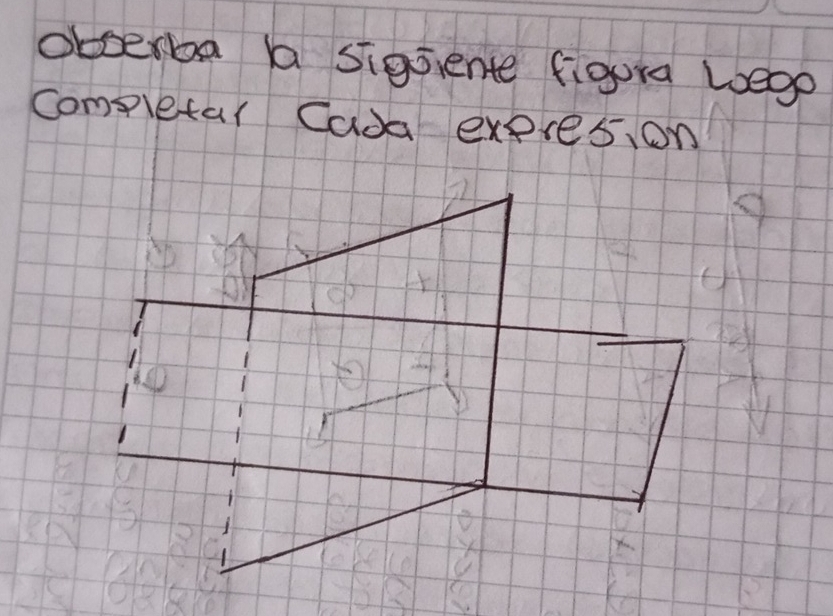 Obserba la sigüiente figura luego
Completar Cada expresion